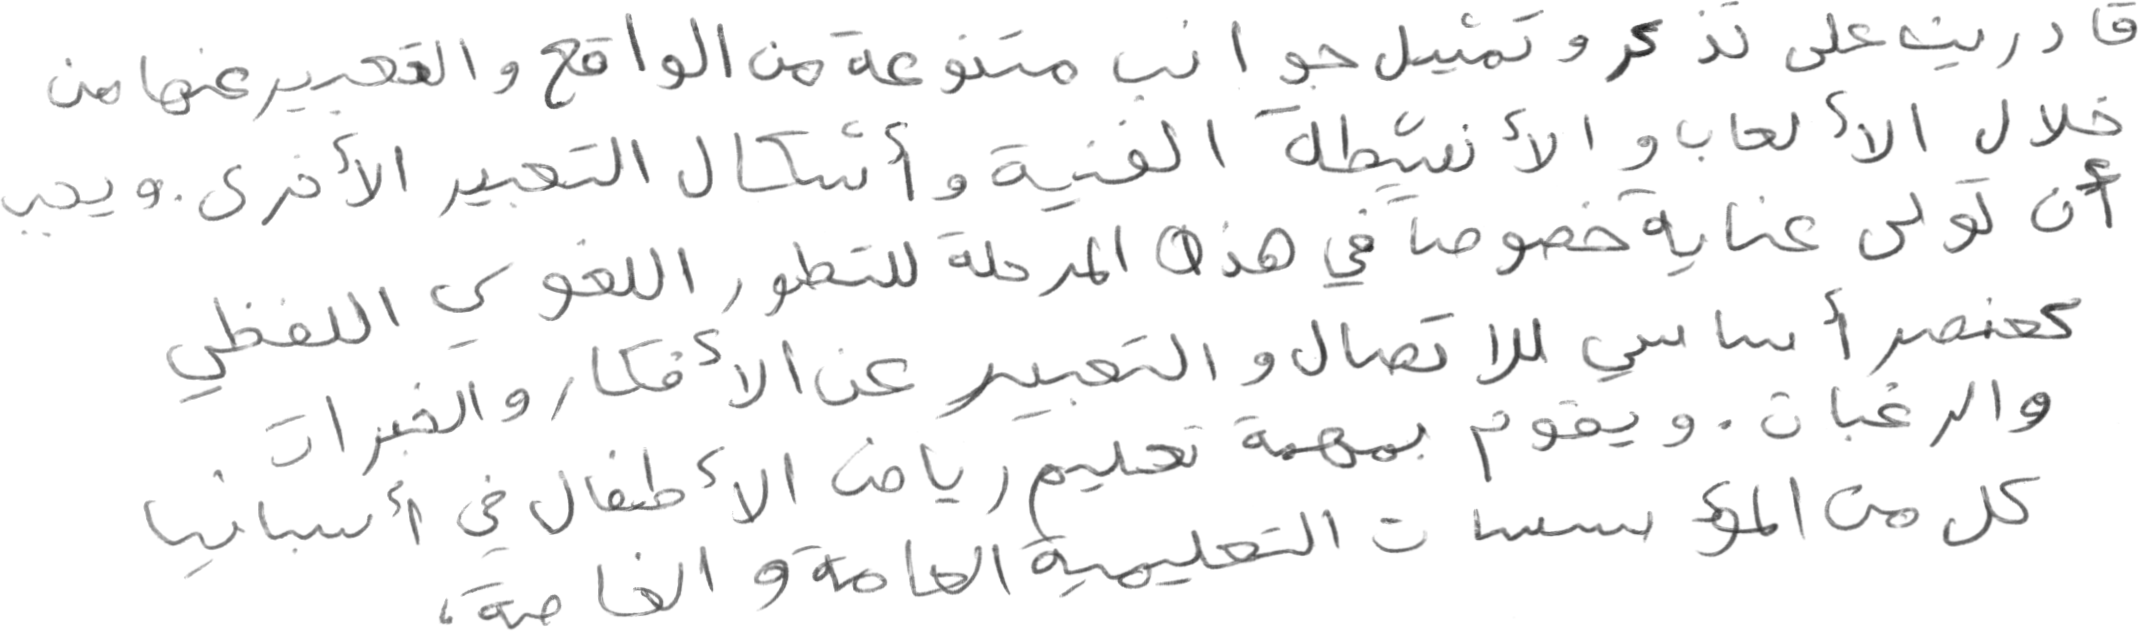 قادرين على تذكر وتمثيل جوانب متنوعة من الواقع والتعبير عنها من
خلال الألعاب والأنشطة الفنية وأشكال التعبير الأخرى. ويجب
أن تولى عناية خصوصاً في هذه المرحلة للتطور اللغوي اللفظي
كعنصر أساسي للاتصال والتعبير عن الأفكار والخبرات
والرغبات. ويقوم بمهمة تعليم رياض الأطفال في أسبانيا
كل من المؤسسات التعليمية العامة والخاصة،